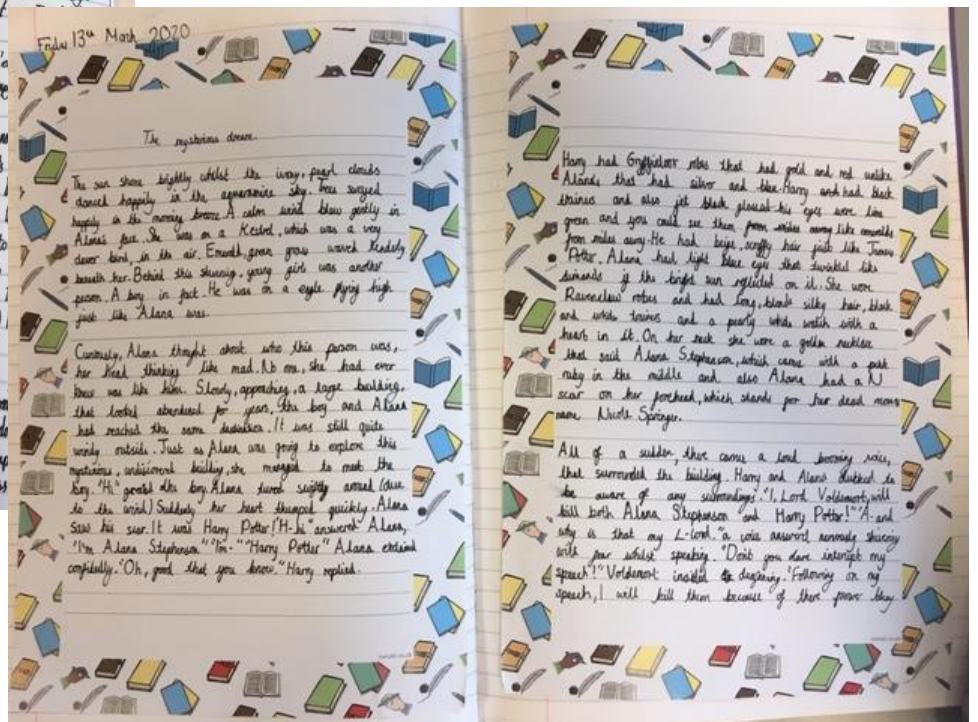 Friday 13th March 2020
The mysterious dream.
The sun shone brightly whilst the ivory, pearl clouds
danced happily in the aquamarine sky. Trees swayed
happily in the morning breeze. A calm wind blew gently in
Alana's face. She was on a Kestrel, which was a very
clever bird, in the air. Emerald, green grass waved
beneath her. Behind this stunning, young girl was another
person. A boy in fact. He was on a eagle flying high
just like Alana was.
Curiously, Alana thought about who this person was,
her head thinking like mad. No one, she had ever
knew was like him. Slowly, approaching, a large building,
that looked abandoned for years, the boy and Alana
had reached the same It was still quite
windy outside. Just as Alana was going to explore this
mysterious, building, she managed to meet the
boy. "Hi" greeted the boy. Alana turned slightly around (due
to the wind) Suddenly her heart thumped quickly. Alana
saw his scar. It was Harry Potter! "H-hi" answered Alana,
"I'm Alana Stephenson" "I'm-" "Harry Potter" Alana
confidently. "Oh, good that you know." Harry replied.
Harry had robes that had gold and red unlike
Alana's that had silver and blue. Harry had black
trainers and also jet black his eyes were lime
green and you could see them like emeralds
from miles away. He had beige, scruffy hair just like James
Potter. Alana had light blue eyes that twinkled like
if the bright sun reflected on it. She wore
Ravenclaw robes and had long, blonde silky hair, black
and white trainers and a pearly white watch with a
heart in it. On her neck she wore a golden necklace
that said Alana Stephenson, which came with a pink
ruby in the middle and also Alana had a N
scar on her forehead, which stands for her dead mums
name Nicole Springer.
All of a sudden, there came a loud booming voice,
that surrounded the building. Harry and Alana to
be aware of any surroundings. "I, Lord Voldemort, will
kill both Alana Stephenson and Harry Potter!" "A-and
why is that my L-lord" a voice answered nervously
with fear whilst speaking. "Don't you dare interrupt my
speech!" Voldemort "Following on my
speech, I will kill them because of there power they